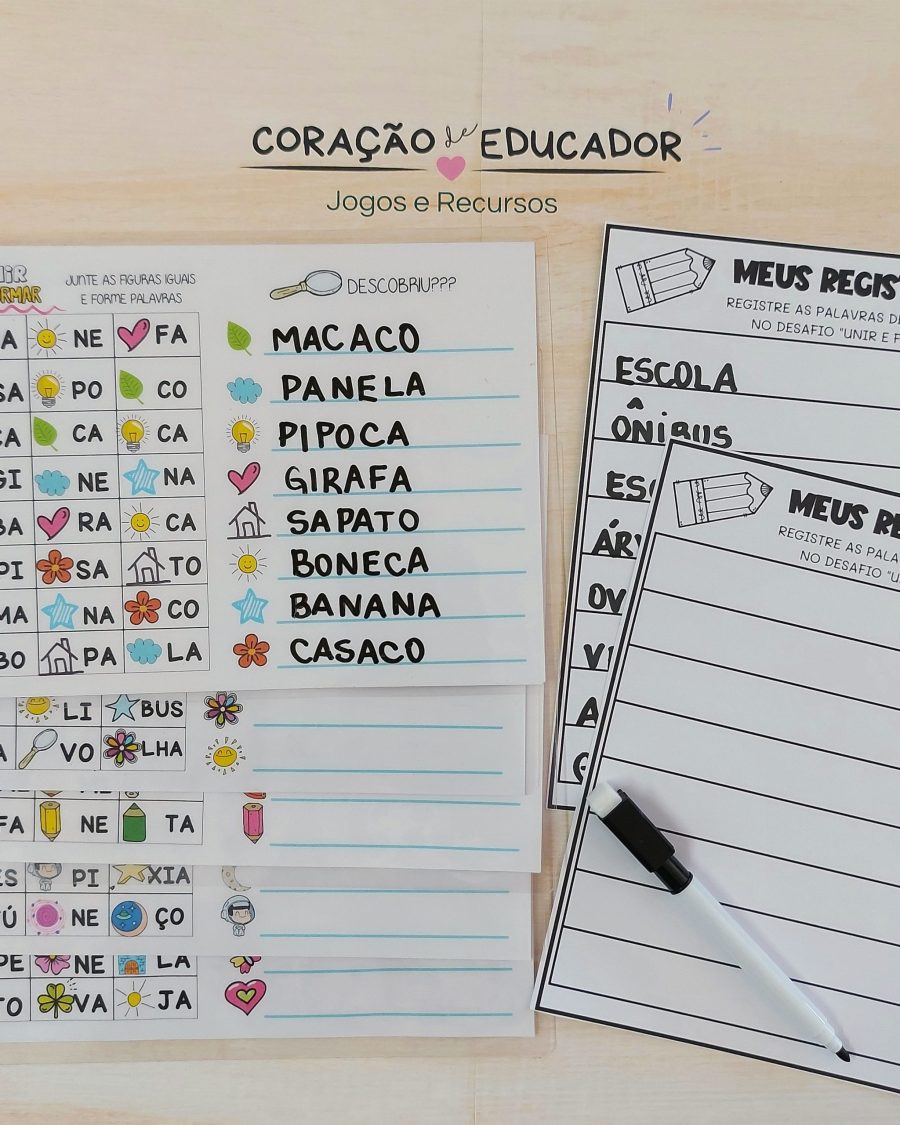 CORAÇÃO de EDUCADOR
Jogos e Recursos
JUNTE AS FIGURAS IGUAIS
E FORME PALAVRAS
DESCOBRIU???
A NE FA
SA PO CO
CA CA CA
GI NE NA
BA RA CA
PI SA TO
MA NA CO
BO PA LA
MACACO
PANELA
PIPOCA
GIRAFA
SAPATO
BONECA
BANANA
CASACO
LI BUS
A VO LHA
FA NE TA
ES PI XIA
TÚ NE ÇO
PE NE LA
TO VA JA
MEUS REGIST
REGISTRE AS PALAVRAS DE
NO DESAFIO "UNIR E F
ESCOLA
ÔNIBUS
ES
ÁR
OV
V
A
MEUS RE
REGISTRE AS PALA
NO DESAFIO "U